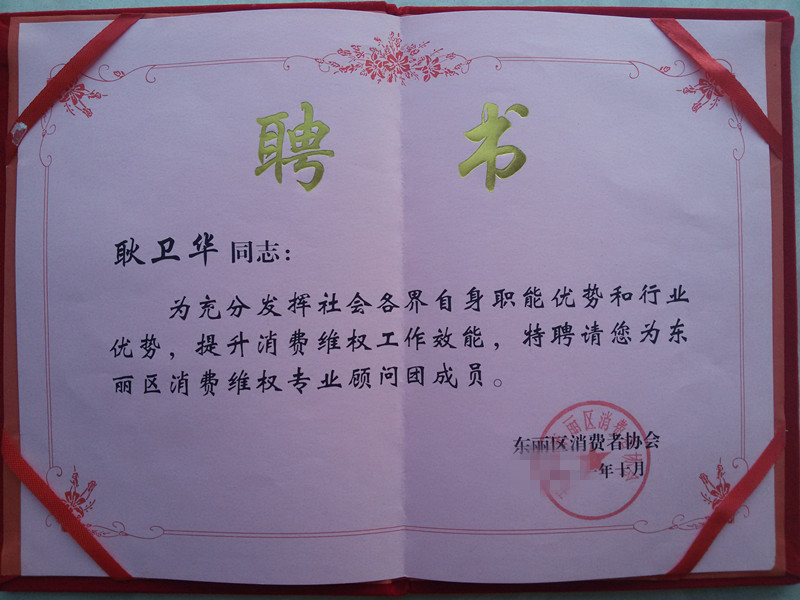 聘书
耿卫华同志：
为充分发挥社会各界自身职能优势和行业
优势，提升消费维权工作效能，特聘请您为东
丽区消费维权专业顾问团成员。
东丽区消费者协会
年十月